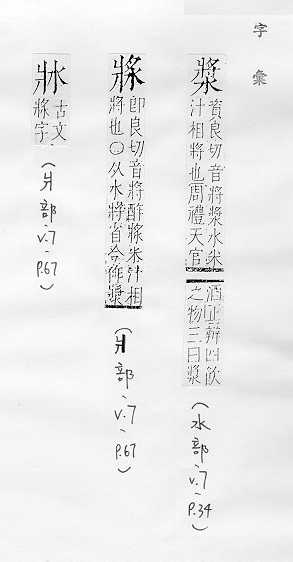 字彙
漿
資良切音將漿水米
汁相將也周禮天官
酒正辨四飲
之物三曰漿
(水部、v.7、P.34)
即良切音將酢漿米汁相
將也○从水將省今作漿
(爿部、v.7、P.67)
古文
漿字
(爿部、v.7、P.67)